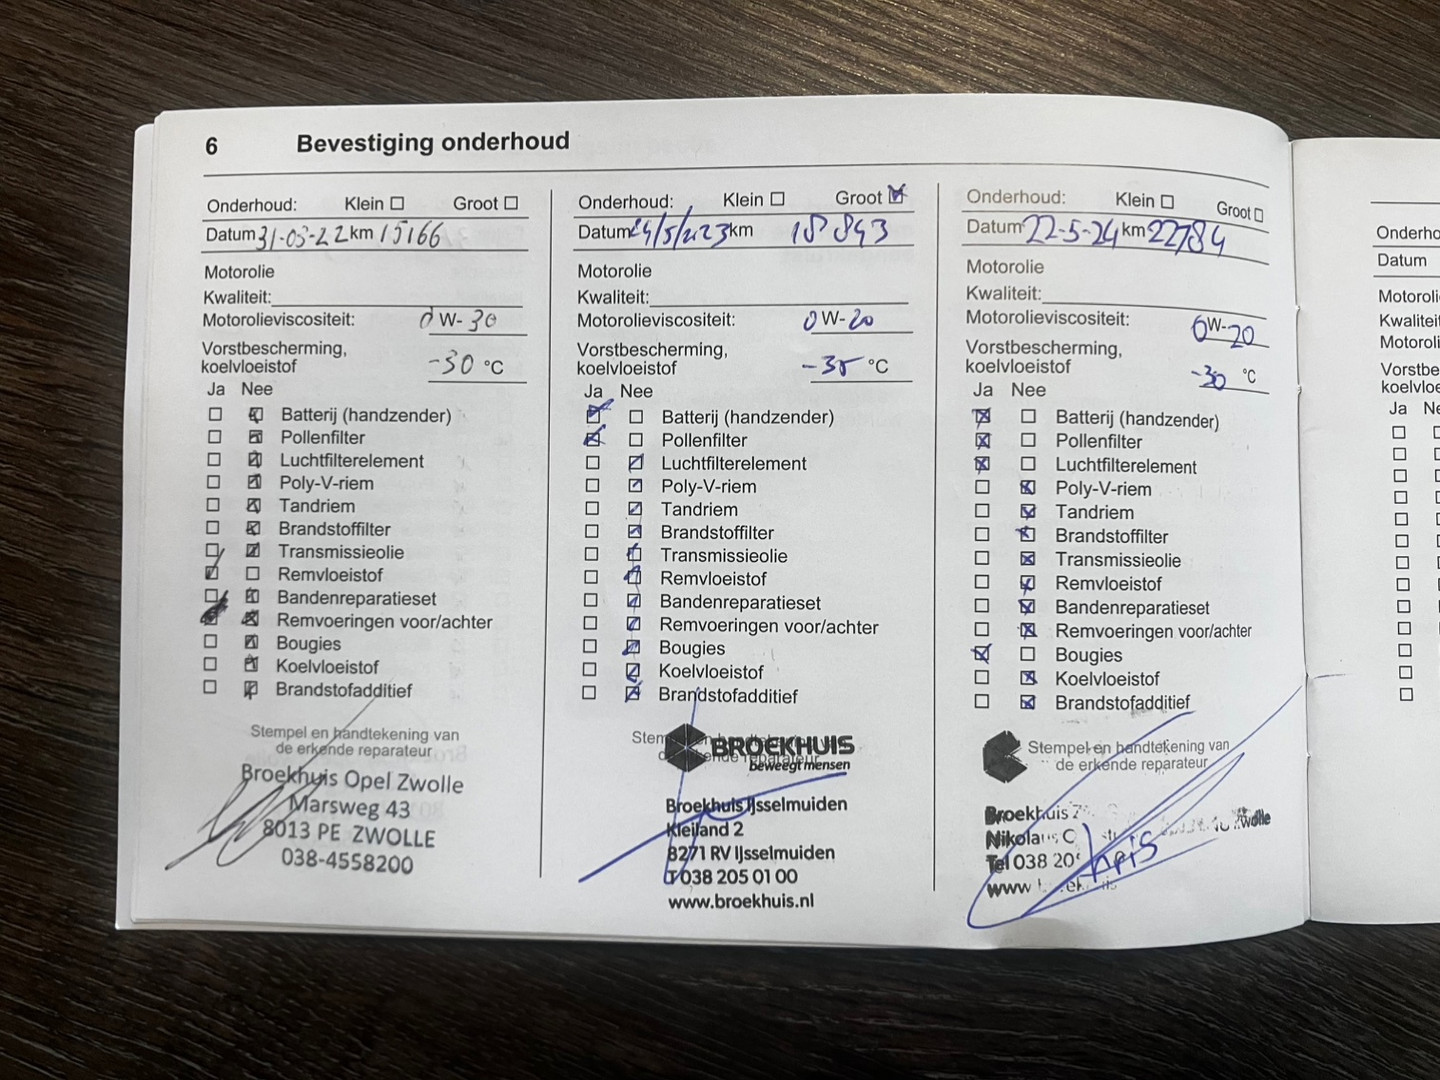 6 Bevestiging onderhoud
Onderhoud: Klein Groot
Datum 31-03-22 km 15166
Motorolie
Kwaliteit:
Motorolieviscositeit: 0 W- 30
Vorstbescherming,
koelvloeistof -30 °C
Ja Nee
Batterij (handzender)
Pollenfilter
Luchtfilterelement
Poly-V-riem
Tandriem
Brandstoffilter
Transmissieolie
Remvloeistof
Bandenreparatieset
Remvoeringen voor/achter
Bougies
Koelvloeistof
Brandstofadditief
Stempel en handtekening van
de erkende reparateur
Broekhuis Opel Zwolle
Marsweg 43
8013 PE ZWOLLE
038-4558200
Onderhoud: Klein Groot
Datum 24/5/2023 km 18 843
Motorolie
Kwaliteit:
Motorolieviscositeit: 0 W- 20
Vorstbescherming,
koelvloeistof -35 °C
Ja Nee
Batterij (handzender)
Pollenfilter
Luchtfilterelement
Poly-V-riem
Tandriem
Brandstoffilter
Transmissieolie
Remvloeistof
Bandenreparatieset
Remvoeringen voor/achter
Bougies
Koelvloeistof
Brandstofadditief
BROEKHUIS
beweegt mensen
Broekhuis IJsselmuiden
Kleiland 2
8271 RV IJsselmuiden
T 038 205 01 00
www.broekhuis.nl
Onderhoud: Klein Groot
Datum 22-5-24 km 22784
Motorolie
Kwaliteit:
Motorolieviscositeit: 0 W- 20
Vorstbescherming,
koelvloeistof -30 °C
Ja Nee
Batterij (handzender)
Pollenfilter
Luchtfilterelement
Poly-V-riem
Tandriem
Brandstoffilter
Transmissieolie
Remvloeistof
Bandenreparatieset
Remvoeringen voor/achter
Bougies
Koelvloeistof
Brandstofadditief
Stempel en handtekening van
de erkende reparateur
Broekhuis Zwolle
Tel 038
www
Datum
Ja